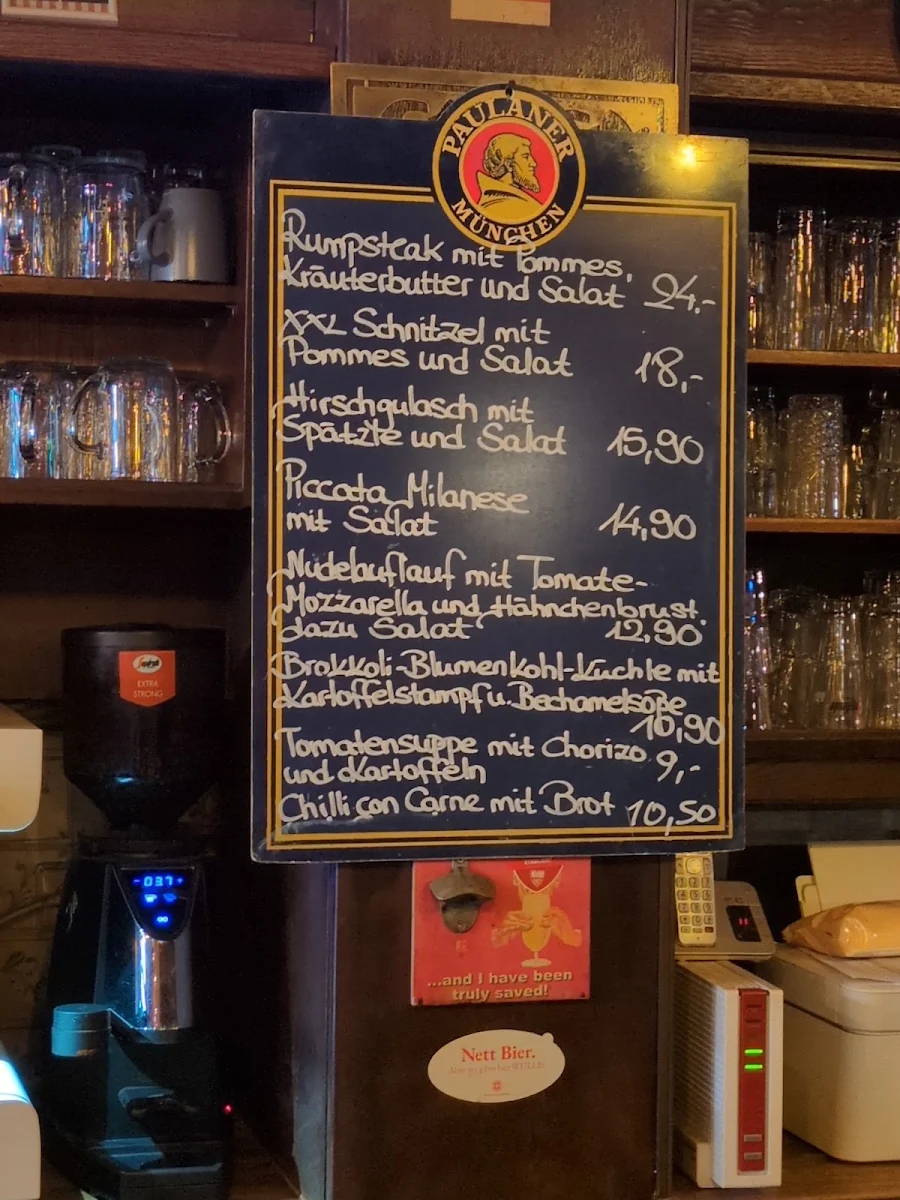 PAULANER
MÜNCHEN
Rumpsteak mit Pommes,
Kräuterbutter und Salat 24,-
XXL Schnitzel mit
Pommes und Salat 18,-
Hirschgulasch mit
Spätzle und Salat 15,90
Piccata Milanese
mit Salat 14,90
Nudelauflauf mit Tomate-
Mozzarella und Hähnchenbrust.
dazu Salat 12,90
Brokkoli-Blumenkohl-Küchle mit
Kartoffelstampf u. Bechamelsoße
10,90
Tomatensuppe mit Chorizo
und Kartoffeln 9,-
Chilli con Carne mit Brot 10,50
EXTRA
STRONG
03.7
...and I have been
truly saved!
Nett Bier.